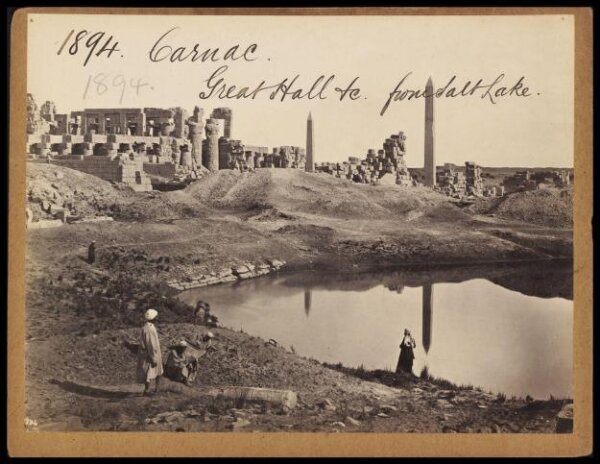 1894. Carnac.
1894.
Great Hall &c. from Salt Lake.